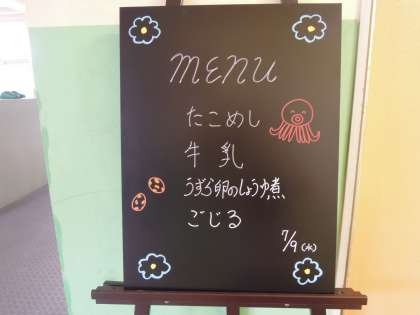 MENU
たこめし
牛乳
うずら卵のしょうゆ煮
ごじる
7/9(水)